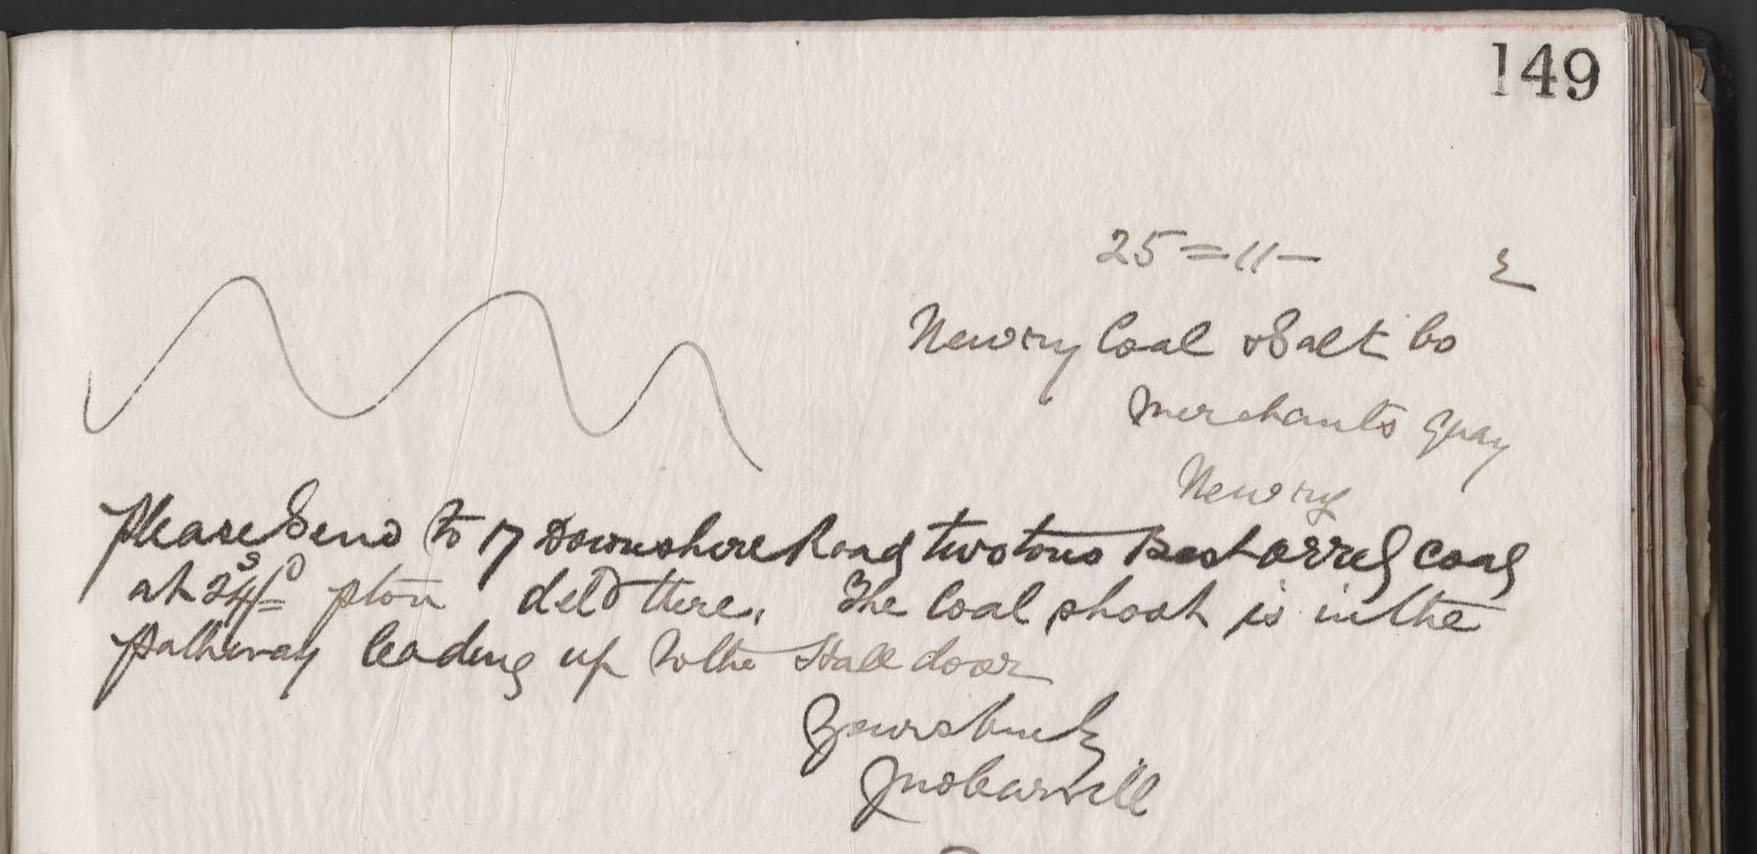 149
25=11-
Newry Coal & Salt Co
Merchants Quay
Newry
Please Send to 17 Downshire Road two tons best orrel coal
at 24s/= pton deld there. The Coal shoot is in the
pathway leading up to the Hall door
Yours truly
Jno Carvill